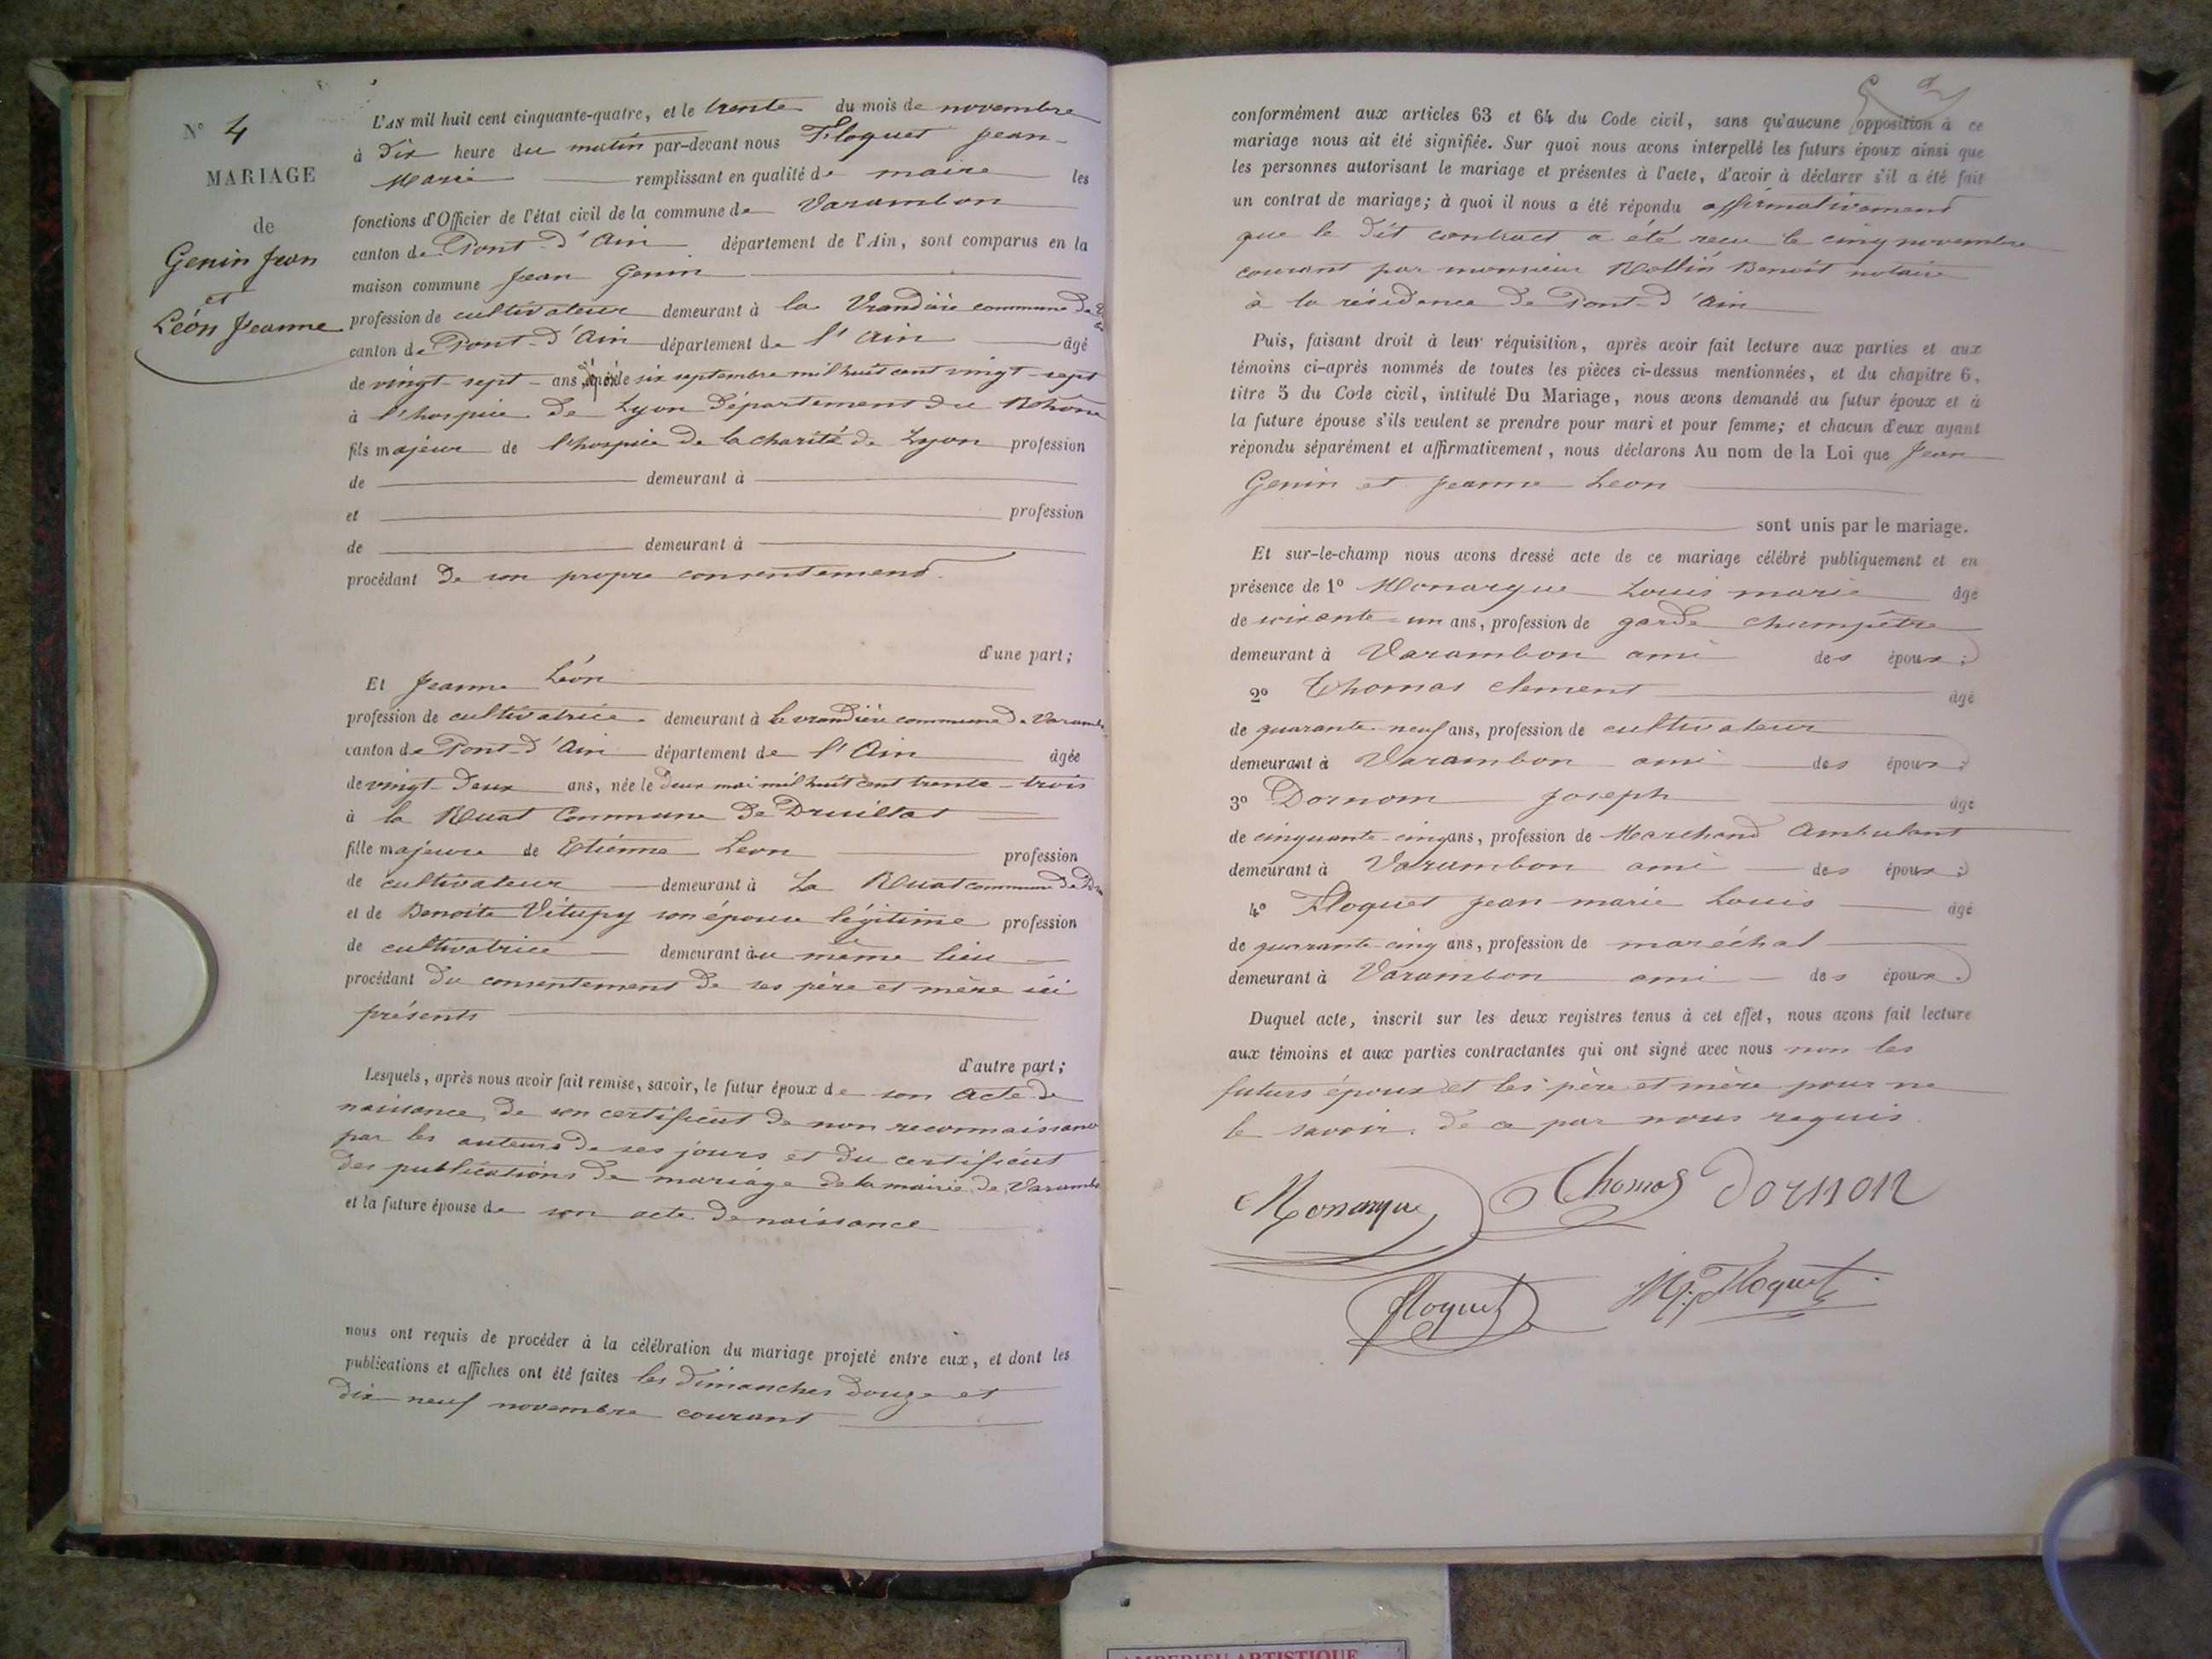 N° 4
MARIAGE
de
Genin Jean
et
Léon Jeanne
L'AN mil huit cent cinquante-quatre, et le trente du mois de novembre
à dix heure du matin par-devant nous Floquet Jean-
Marie remplissant en qualité de maire les
fonctions d'Officier de l'état civil de la commune de Varambon
canton de Pont-d'Ain département de l'Ain, sont comparus en la
maison commune Jean Genin
profession de cultivateur demeurant à la Vrandière commune de
canton de Pont-d'Ain département de l'Ain âgé
de vingt-sept ans, né le six septembre mil huit cent vingt-sept
à l'hospice de Lyon Département du Rhône
fils majeur de l'hospice de la charité de Lyon profession
de demeurant à
et profession
de demeurant à
procédant de son propre consentement.
d'une part;
Et Jeanne Léon
profession de cultivatrice demeurant à la vrandière commune de Varamb
canton de Pont-d'Ain département de l'Ain âgée
de vingt-deux ans, née le deux mai mil huit cent trente-trois
à la Ruat Commune de Druillat
fille majeure de Etienne Leon profession
de cultivateur demeurant à La Ruat commune de Dru
et de Benoite Vitupy son épouse légitime profession
de cultivatrice demeurant au même lieu
procédant du consentement de ses père et mère ici
présents
d'autre part;
Lesquels, après nous avoir fait remise, savoir, le futur époux de son acte de
naissance, de son certificat de non reconnaissance
par les auteurs de ses jours et du certificat
des publications de mariage de la mairie de Varamb
et la future épouse de son acte de naissance
nous ont requis de procéder à la célébration du mariage projeté entre eux, et dont les
publications et affiches ont été faites les dimanches douze et
dix-neuf novembre courant
conformément aux articles 63 et 64 du Code civil, sans qu'aucune opposition à ce
mariage nous ait été signifiée. Sur quoi nous avons interpellé les futurs époux ainsi que
les personnes autorisant le mariage et présentes à l'acte, d'avoir à déclarer s'il a été fait
un contrat de mariage; à quoi il nous a été répondu affirmativement
que le dit contract a été reçu le cinq novembre
courant par monsieur Rollin Benoit notaire
à la résidence de Pont-d'Ain
Puis, faisant droit à leur réquisition, après avoir fait lecture aux parties et aux
témoins ci-après nommés de toutes les pièces ci-dessus mentionnées, et du chapitre 6,
titre 5 du Code civil, intitulé Du Mariage, nous avons demandé au futur époux et à
la future épouse s'ils veulent se prendre pour mari et pour femme; et chacun d'eux ayant
répondu séparément et affirmativement, nous déclarons Au nom de la Loi que Jean
Genin et Jeanne Leon
sont unis par le mariage.
Et sur-le-champ nous avons dressé acte de ce mariage célébré publiquement et en
présence de 1° Monarque Louis marie âgé
de soixante-un ans, profession de garde champêtre
demeurant à Varambon ami des époux;
2° Thomas clement âgé
de quarante-neuf ans, profession de cultivateur
demeurant à Varambon ami des époux;
3° Dornom Joseph âgé
de cinquante-cinq ans, profession de Marchand Ambulant
demeurant à Varambon ami des époux;
4° Floquet Jean marie Louis âgé
de quarante-cinq ans, profession de maréchal
demeurant à Varambon ami des époux.
Duquel acte, inscrit sur les deux registres tenus à cet effet, nous avons fait lecture
aux témoins et aux parties contractantes qui ont signé avec nous non les
futurs époux et les père et mère pour ne
le savoir. de ce par nous requis.
Monarque Thomas Dornon
Floquet M. Floquet